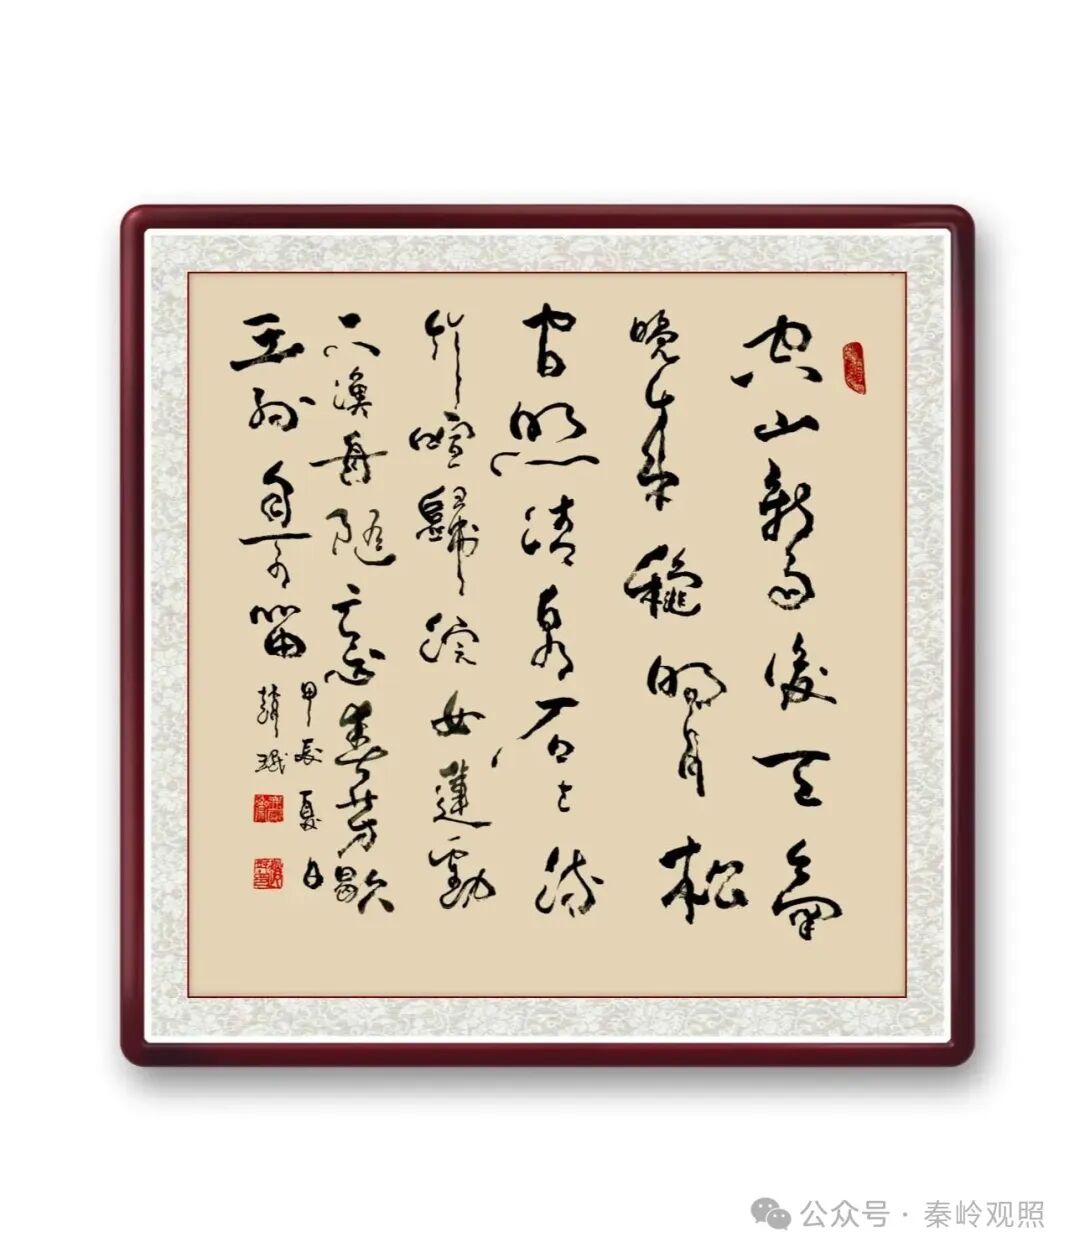 空山新雨後天氣
晚来穐明月松
間照清泉石上流
竹喧歸浣女蓮動
下漁舟隨意春芳歇
王孫自可留
甲辰夏
趙珉
公众号·秦岭观照